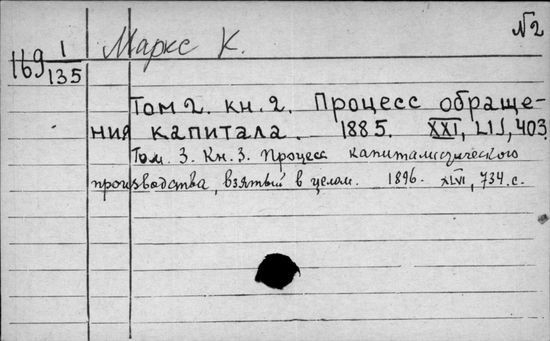 №2
169 1/135
Маркс К.
Том 2. кн. 2. Процесс обраще-
ния капитала. 1885. XXI, LIJ, 403
Том. 3. Кн. 3. Процесс капиталистического
производства, взятый в целом. 1896. XLVI, 734.с.